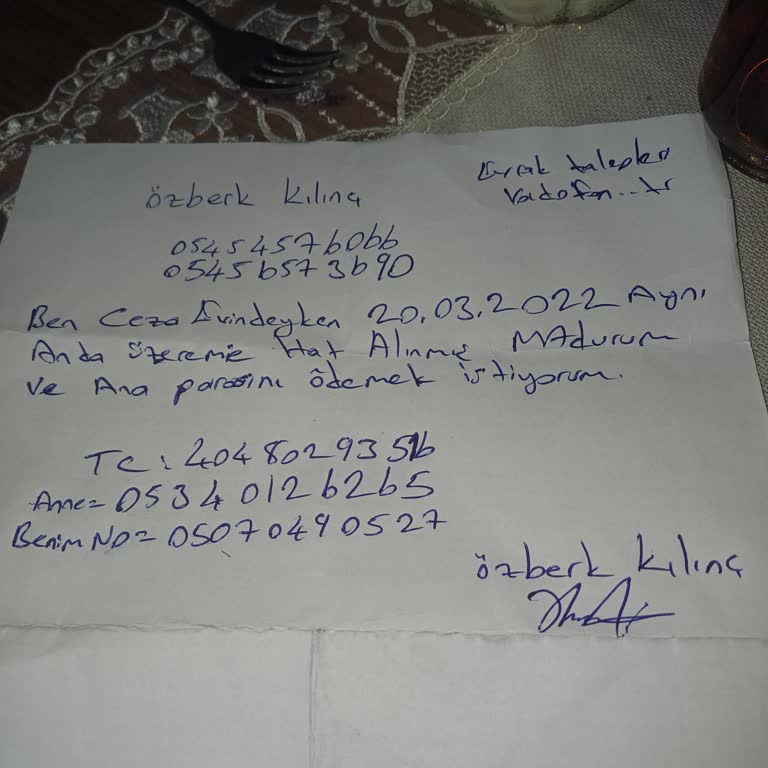 Evrak talepleri
Vodofon..tr
özberk Kılınç
0545 457 6066
0545 657 3690
Ben Ceza Evindeyken 20.03.2022 Aynı
Anda üzereme Hat Alınmış MAdurum
ve Ana parasını ödemek istiyorum.
TC: 40480293516
Anne= 0534 012 6265
Benim NO= 0507 049 0527
özberk Kılınç